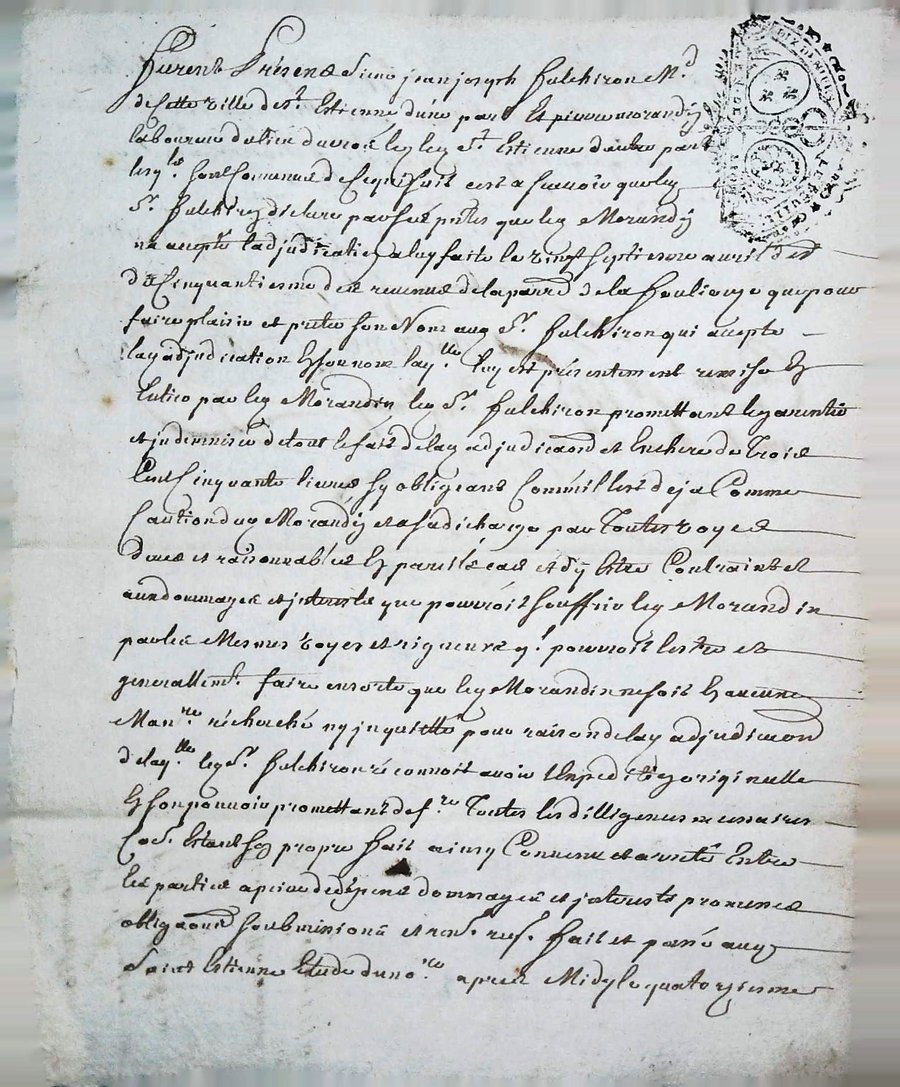 furent Présens Sieur jean joseph fulchiron Md
de cette ville de st Estienne d'une part Et pierre morandin
laboureur du lieu du st Estienne d'autre part
lesqls sont Comenus de ce qui suit cest a scauoir que led
sr fulchiron declare par ses pntes que led Morandin
na accepté ladjudication a luy faite le vingt septiesme auril des
d Cinquantiesme des reuenus de la parre de la fouliouze que pour
faire plaisir et preter son Nom aud sr fulchiron qui accepte
lad adjudication En son nom laqlle luy est présentement remise En
Entier par led Morandin led sr fulchiron promettant le garentir
et jndemniser de tout le fait de lad adjudicaon et Enchere de Trois
Cent Cinquante liures sy obligeant Comm il lest deja Comme
Caution dud Morandin et a sa dicharge par Toutes voyes
dues et raisonnables En pareil cas et dy Estre Contraint et
aux dommages et jnterests que pourroit souffrir led Morandin
par les Mesmes voyes et rigueurs ql pourroit lestre et
generallemt faire en sorte que led Morandin ne soit En aucune
Mannre récherché ny jnquietté pour raison de lad adjudicaon
de laqlle led sr fulchiron réconnoit auoir Lexpedition originelle
En son pouuoir promettant de fre Toutes les dilligences necessaires
Estant son propre fait ainsy Conuenu et arreté Entre
les parties a peine de dépens dommages et jnterests promesses
obligaons soubmissions et renon resp. fait et passé aud
Saint Estienne Etude du nore apres Midy le quatorziesme